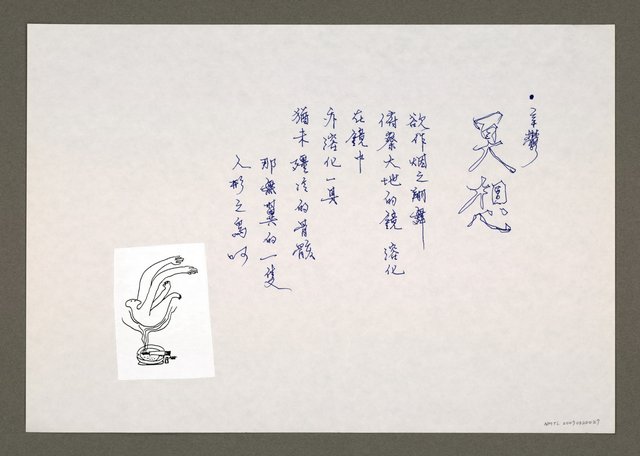 ・辛鬱
冥想
欲作烟之翔舞
俯察大地的鏡 溶化
在鏡中
亦溶化一具
猶未殭冷的骨骸
那無翼的一隻
人形之鳥呵
NMTL